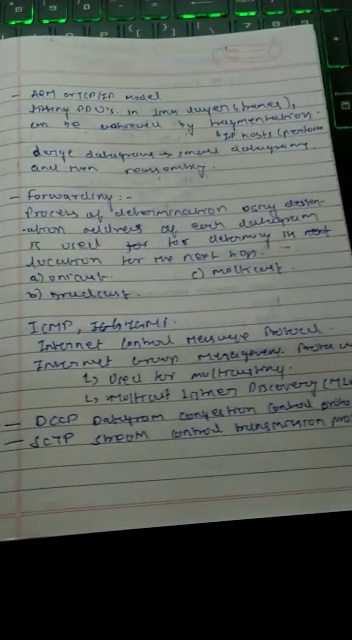 - ARM or TCP/IP model
fitting PDU's in link layer (frames),
can be achieved by fragmentation.
↳ IP hosts (perform
large datagram → small datagram
and then reassembly.
- Forwarding :-
Process of determination using destin-
-ation address of each datagram
is used for determing its next
location for the next hop.
a) unicast. c) multicast.
b) broadcast.
ICMP,
Internet Control Message Protocol.
Internet Group Management
↳ Used for multicasting.
↳ Multicast Listner Discovery (
- DCCP Datagram Congestion Control
- SCTP Stream Control Transmission